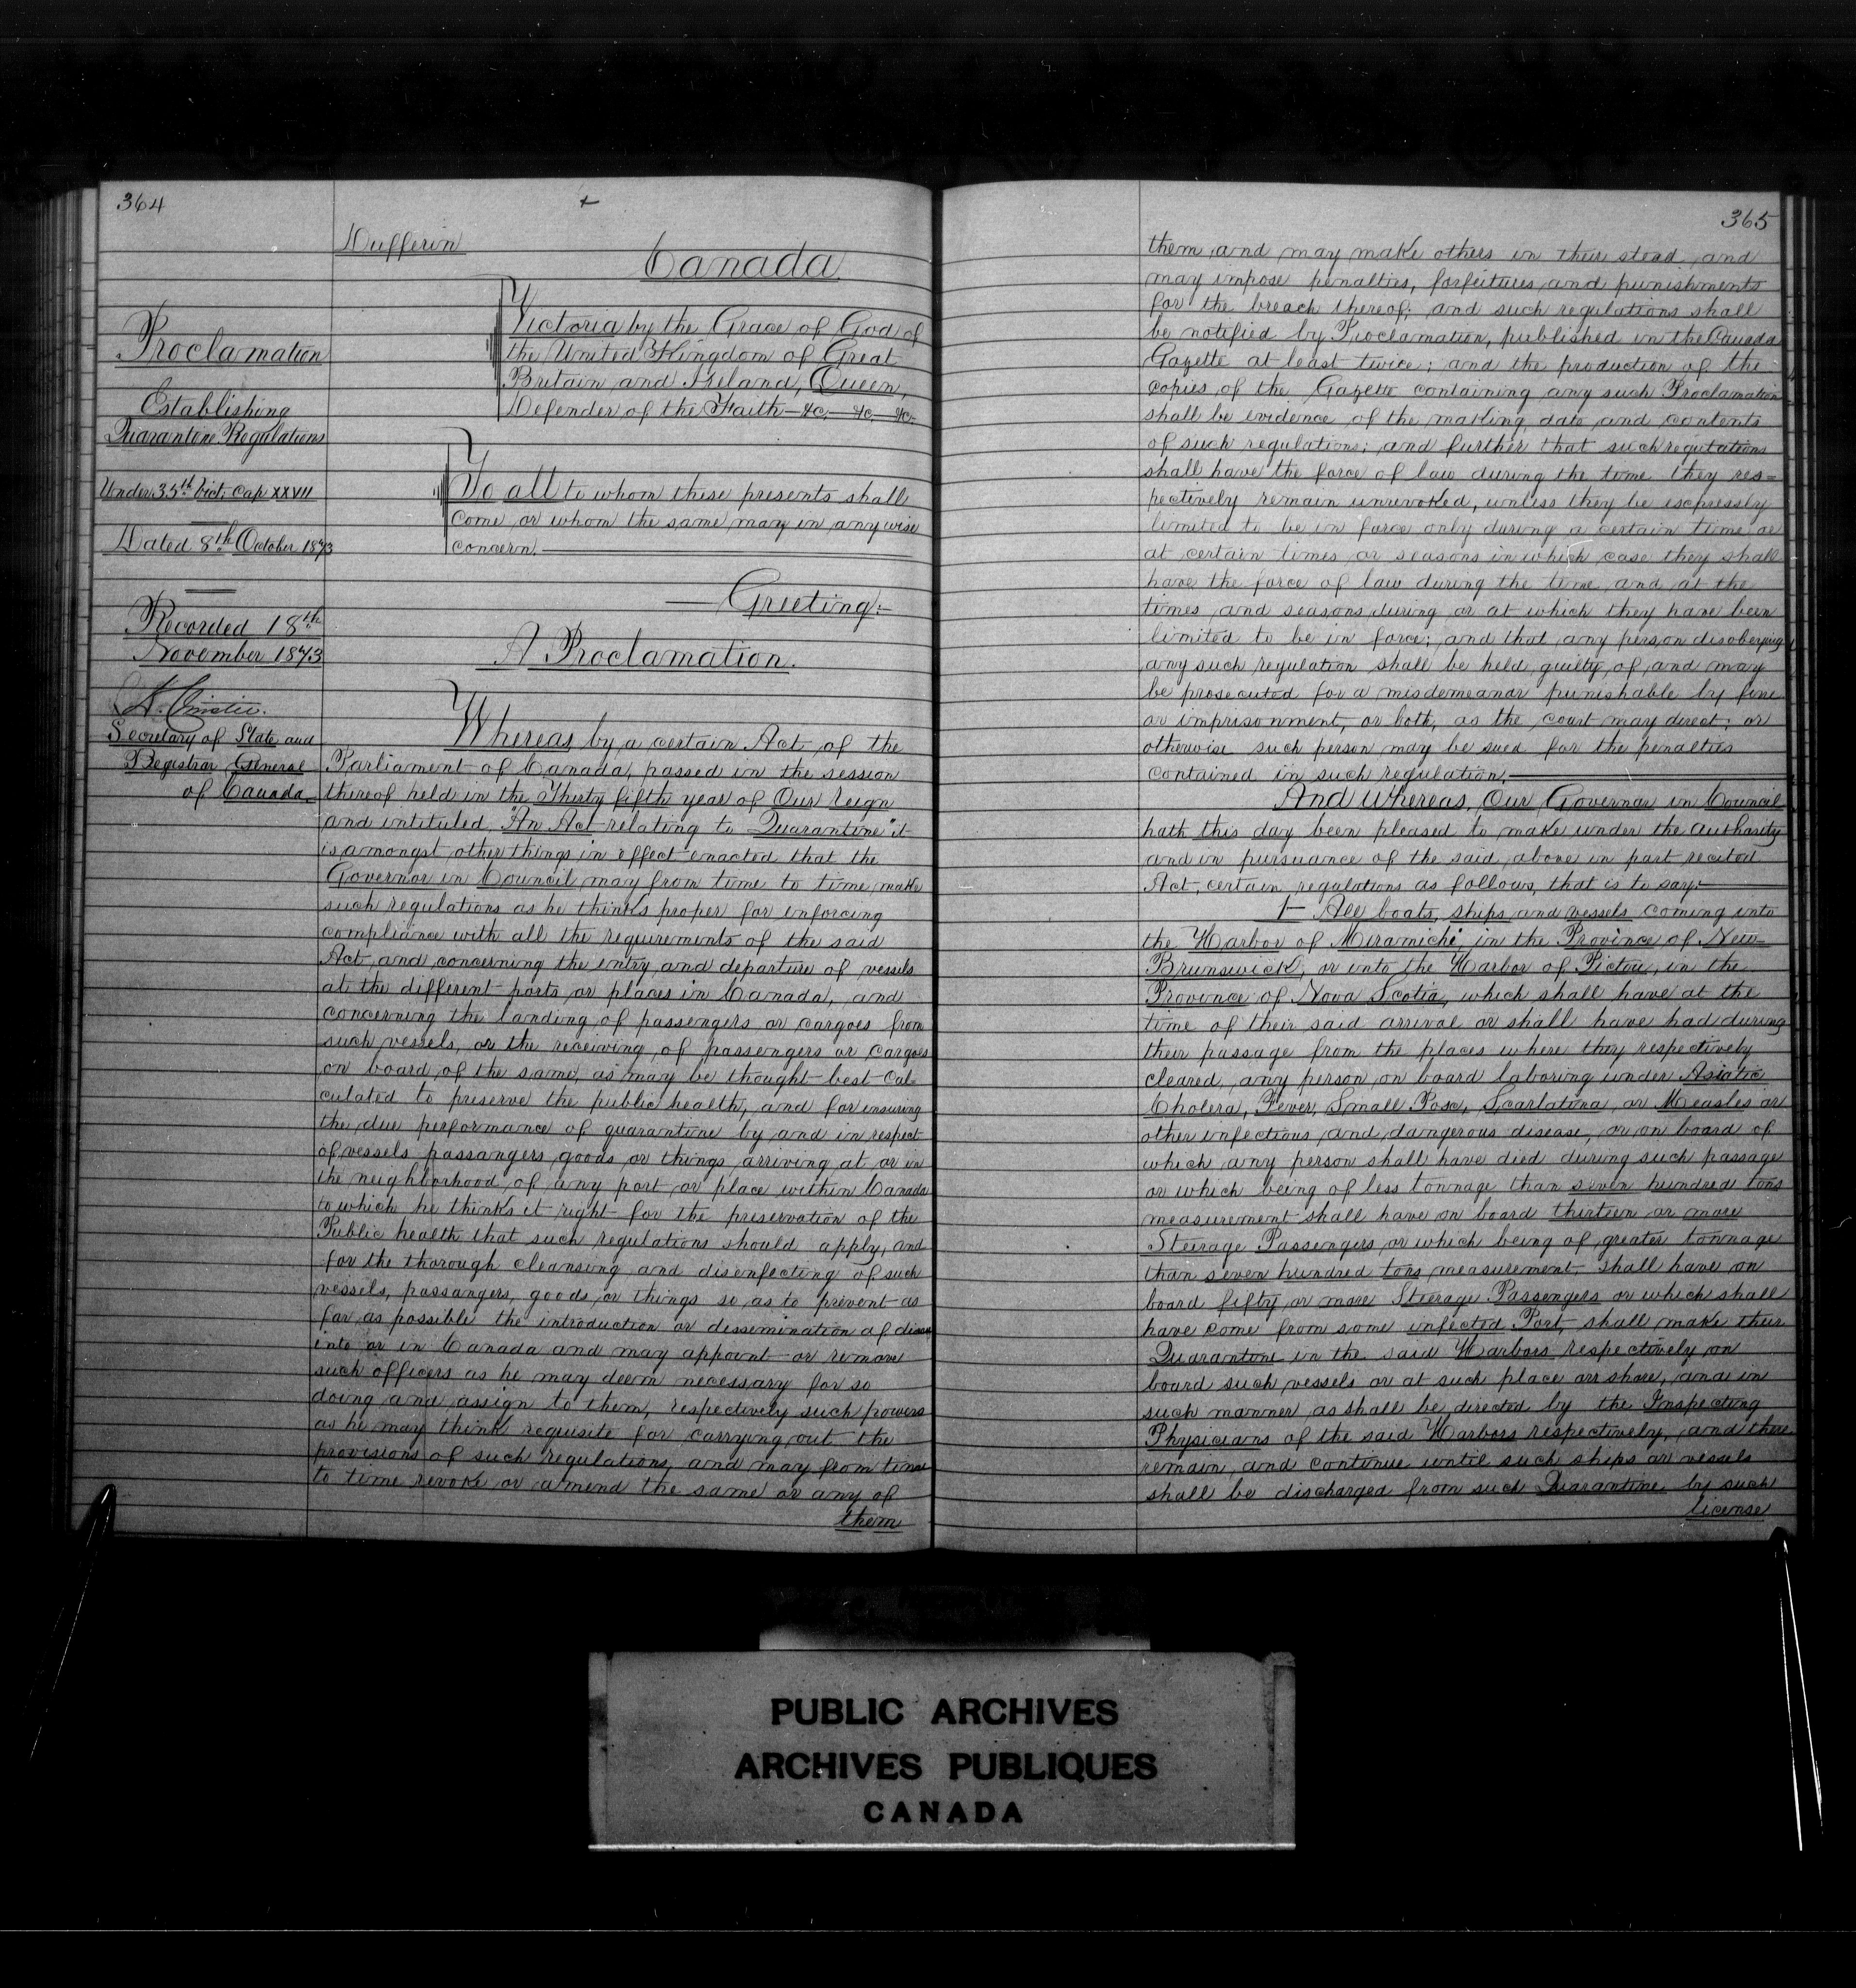 364
Dufferin
Canada.
Proclamation
Establishing
Quarantine Regulations
Under 35th Vict. Cap XXVII
Dated 8th October 1873
Recorded 18th
November 1873
Secretary of State and
Registrar General
of Canada.
Victoria by the Grace of God of
the United Kingdom of Great
Britain and Ireland, Queen,
Defender of the Faith — &c. — &c. — &c.
To all to whom these presents shall
come or whom the same may in anywise
concern.
— Greeting:—
A Proclamation.
Whereas by a certain Act of the
Parliament of Canada, passed in the session
thereof held in the Thirty fifth year of Our reign
and intituled "An Act relating to Quarantine" it
is amongst other things in effect enacted that the
Governor in Council may from time to time make
such regulations as he thinks proper for enforcing
compliance with all the requirements of the said
Act and concerning the entry and departure of vessels
at the different ports or places in Canada, and
concerning the landing of passengers or cargoes from
such vessels, or the receiving of passengers or cargoes
on board of the same, as may be thought best cal=
culated to preserve the public health, and for ensuring
the due performance of quarantine by and in respect
of vessels passangers goods or things arriving at or in
the neighborhood of any port or place within Canada
to which he thinks it right for the preservation of the
Public health that such regulations should apply, and
for the thorough cleansing and disenfecting of such
vessels, passangers, goods or things so as to prevent as
far as possible the introduction or dessemination of disease
into or in Canada and may appoint or remove
such officers as he may deem necessary for so
doing and assign to them, respectively such powers
as he may think requisite for carrying out the
provisions of such regulations, and may from time
to time revoke or amend the same or any of
them
365
them and may make others in their stead and
may impose penalties, forfeitures and punishments
for the breach thereof; and such regulations shall
be notified by Proclamation, published in the Canada
Gazette at least twice; and the production of the
copies of the Gazette containing any such Proclamation
shall be evidence of the making date and contents
of such regulations; and further that such regulations
shall have the force of law during the time they res=
pectively remain unrevoked, unless they be expressly
limited to be in force only during a certain time or
at certain times or seasons in which case they shall
have the force of law during the time and at the
times and seasons during or at which they have been
limited to be in force; and that any person disobeying
any such regulation shall be held guilty of and may
be prosecuted for a misdemeanor punishable by fine
or imprisonment, or both, as the court may direct; or
otherwise such person may be sued for the penalties
contained in such regulation.
And Whereas, Our Governor in Council
hath this day been pleased to make under the authority
and in pursuance of the said above in part recited
Act, certain regulations as follows, that is to say:—
1— All boats, ships and vessels coming into
the Harbor of Miramichi, in the Province of New
Brunswick, or into the Harbor of Pictou, in the
Province of Nova Scotia, which shall have at the
time of their said arrival or shall have had during
their passage from the places where they respectively
cleared, any person on board laboring under Asiatic
Cholera, Fever, Small Pox, Scarlatina, or Measles or
other infectious and dangerous disease, or on board of
which any person shall have died during such passage
or which being of less tonnage than seven hundred tons
measurement shall have on board thirteen or more
Steerage Passengers or which being of greater tonnage
than seven hundred tons measurement, shall have on
board fifty or more Steerage Passengers or which shall
have come from some infected Port, shall make their
Quarantine in the said Harbors respectively on
board such vessels or at such place on shore, and in
such manner as shall be directed by the Inspecting
Physicians of the said Harbors respectively, and there
remain and continue until such ships or vessels
shall be discharged from such Quarantine by such
license
PUBLIC ARCHIVES
ARCHIVES PUBLIQUES
CANADA